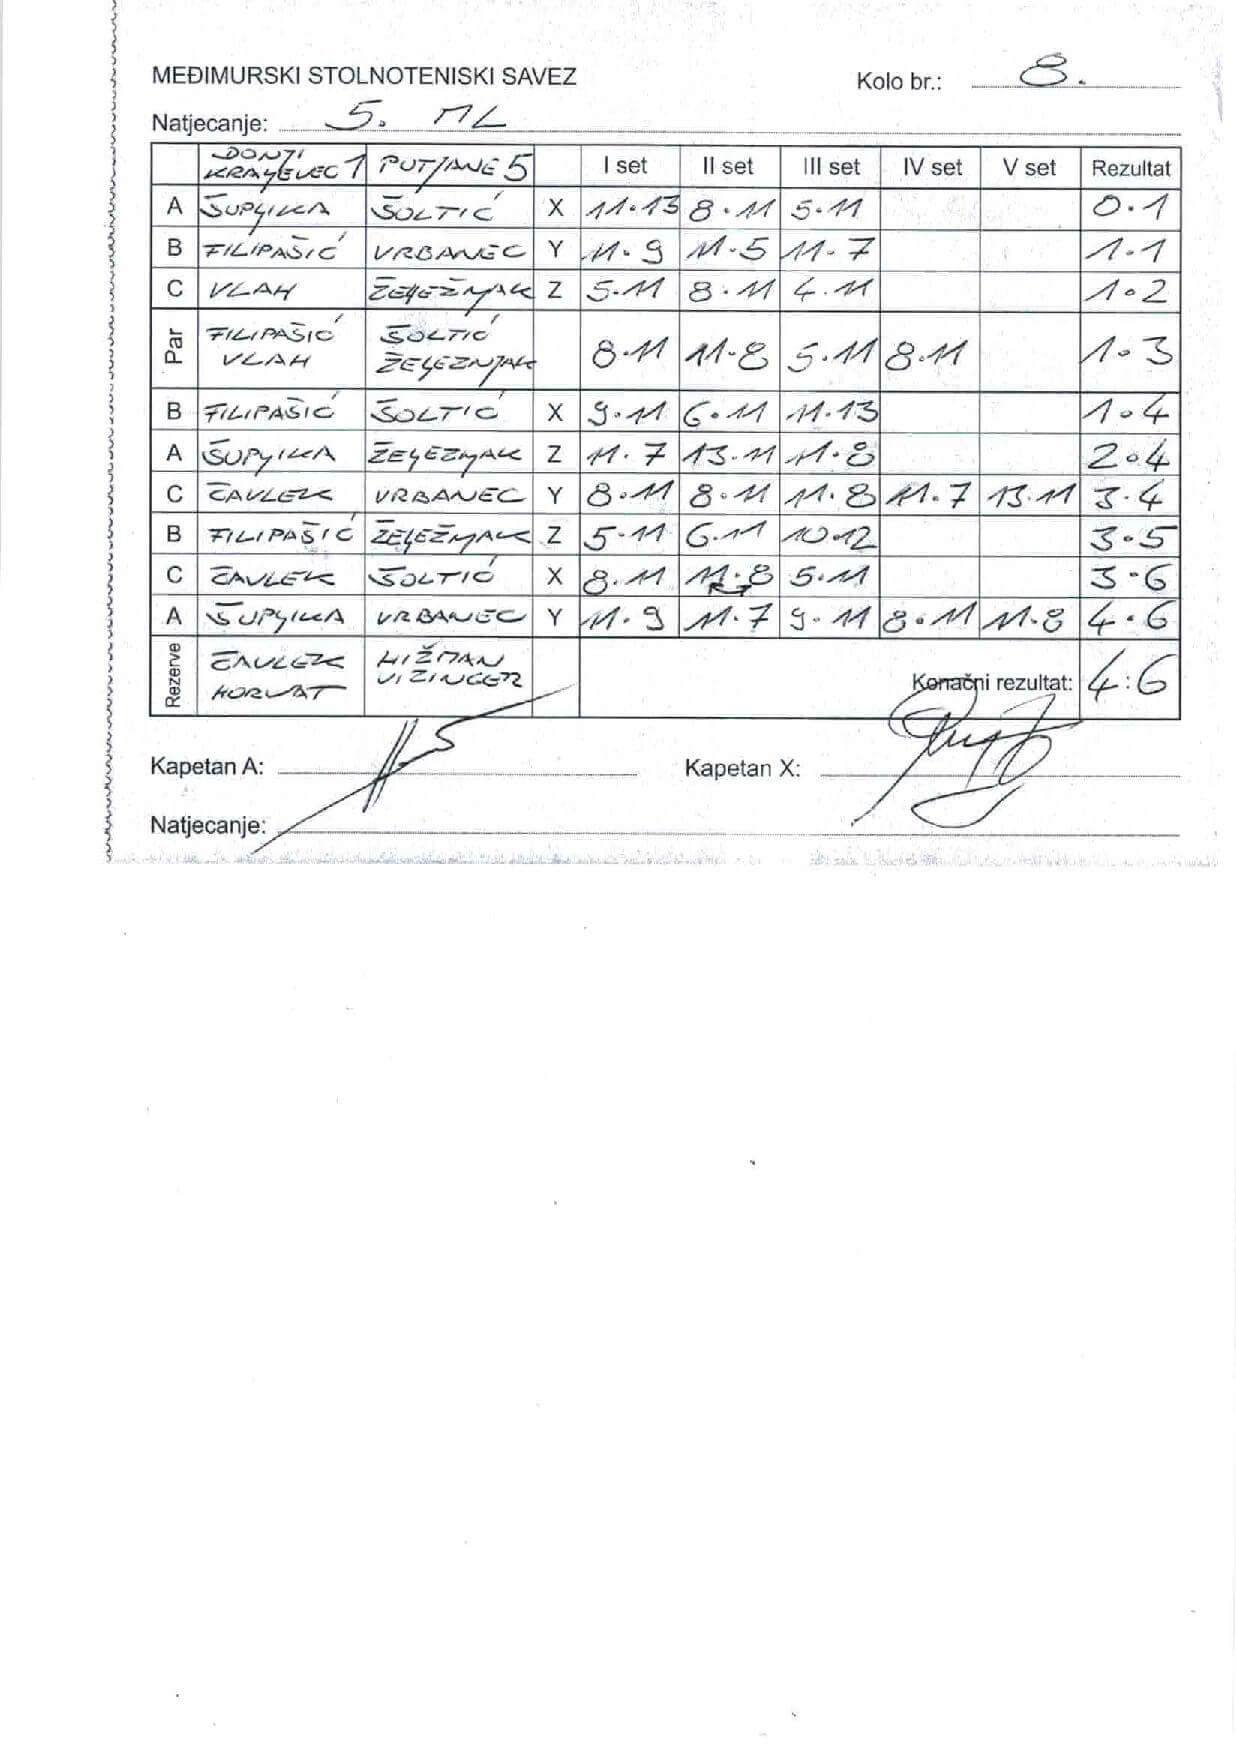 MEĐIMURSKI STOLNOTENISKI SAVEZ
Kolo br.: 8.
Natjecanje: 5. ML
DONJI KRALJEVEC 1 PUTJANE 5 I set II set III set IV set V set Rezultat
A ŠUPLJIKA ŠOLTIĆ X 11.13 8.11 5.11 0.1
B FILIPAŠIĆ VRBANEC Y 11.9 11.5 11.7 1.1
C VLAH ŽELJEŽNJAK Z 5.11 8.11 4.11 1.2
Par FILIPAŠIĆ VLAH ŠOLTIĆ ŽELJEZNJAK 8.11 11.8 5.11 8.11 1.3
B FILIPAŠIĆ ŠOLTIĆ X 9.11 6.11 11.13 1.4
A ŠUPLJIKA ŽELJEZNJAK Z 11.7 13.11 11.8 2.4
C ČAVLEK VRBANEC Y 8.11 8.11 11.8 11.7 13.11 3.4
B FILIPAŠIĆ ŽELJEŽNJAK Z 5.11 6.11 10.12 3.5
C ČAVLEK ŠOLTIĆ X 8.11 5.11 3.6
A ŠUPLJIKA VRBANEC Y 11.9 11.7 9.11 8.11 11.8 4.6
Rezerve ČAVLEK HORVAT HIŽMAN VIZINGER Konačni rezultat: 4:6
Kapetan A: Kapetan X:
Natjecanje: